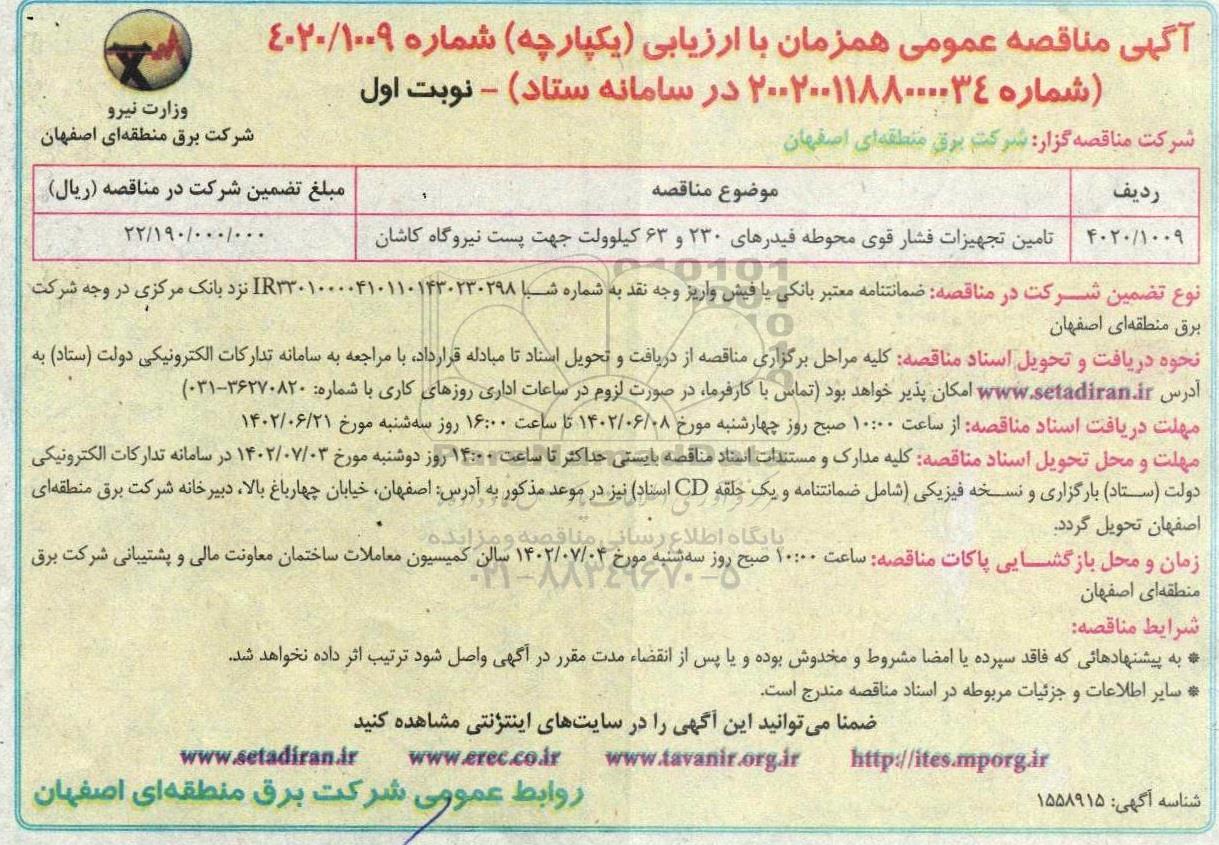 آگهی مناقصه عمومی همزمان با ارزیابی (یکپارچه) شماره ۴۰۲۰/۱۰۰۹
(شماره ۲۰۰۲۰۰۱۱۸۸۰۰۰۰۳۴ در سامانه ستاد) – نوبت اول
وزارت نیرو
شرکت برق منطقه‌ای اصفهان
شرکت مناقصه‌گزار: شرکت برق منطقه‌ای اصفهان
ردیف موضوع مناقصه مبلغ تضمین شرکت در مناقصه (ریال)
۴۰۲۰/۱۰۰۹ تامین تجهیزات فشار قوی محوطه فیدرهای ۲۳۰ و ۶۳ کیلوولت جهت پست نیروگاه کاشان ۲۲/۱۹۰/۰۰۰/۰۰۰
نوع تضمین شرکت در مناقصه: ضمانتنامه معتبر بانکی یا فیش واریز وجه نقد به شماره شبا IR۳۳۰۱۰۰۰۰۴۱۰۱۱۰۱۴۳۰۲۳۰۲۹۸ نزد بانک مرکزی در وجه شرکت
برق منطقه‌ای اصفهان
نحوه دریافت و تحویل اسناد مناقصه: کلیه مراحل برگزاری مناقصه از دریافت و تحویل اسناد تا مبادله قرارداد، با مراجعه به سامانه تدارکات الکترونیکی دولت (ستاد) به
آدرس www.setadiran.ir امکان پذیر خواهد بود (تماس با کارفرما، در صورت لزوم در ساعات اداری روزهای کاری با شماره: ۳۶۲۷۰۸۲۰-۰۳۱)
مهلت دریافت اسناد مناقصه: از ساعت ۱۰:۰۰ صبح روز چهارشنبه مورخ ۱۴۰۲/۰۶/۰۸ تا ساعت ۱۶:۰۰ روز سه‌شنبه مورخ ۱۴۰۲/۰۶/۲۱
مهلت و محل تحویل اسناد مناقصه: کلیه مدارک و مستندات اسناد مناقصه بایستی حداکثر تا ساعت ۱۴:۰۰ روز دوشنبه مورخ ۱۴۰۲/۰۷/۰۳ در سامانه تدارکات الکترونیکی
دولت (ستاد) بارگزاری و نسخه فیزیکی (شامل ضمانتنامه و یک حلقه CD اسناد) نیز در موعد مذکور به آدرس: اصفهان، خیابان چهارباغ بالا، دبیرخانه شرکت برق منطقه‌ای
اصفهان تحویل گردد.
پایگاه اطلاع رسانی مناقصه و مزایده
زمان و محل بازگشایی پاکات مناقصه: ساعت ۱۰:۰۰ صبح روز سه‌شنبه مورخ ۱۴۰۲/۰۷/۰۴ سالن کمیسیون معاملات ساختمان معاونت مالی و پشتیبانی شرکت برق
۰۲۱-۸۸۳۴۹۶۷۰-۵
منطقه‌ای اصفهان
شرایط مناقصه:
* به پیشنهادهائی که فاقد سپرده یا امضا مشروط و مخدوش بوده و یا پس از انقضاء مدت مقرر در آگهی واصل شود ترتیب اثر داده نخواهد شد.
* سایر اطلاعات و جزئیات مربوطه در اسناد مناقصه مندرج است.
ضمنا می‌توانید این آگهی را در سایت‌های اینترنتی مشاهده کنید
http://ites.mporg.ir www.tavanir.org.ir www.erec.co.ir www.setadiran.ir
شناسه آگهی: ۱۵۵۸۹۱۵
روابط عمومی شرکت برق منطقه‌ای اصفهان